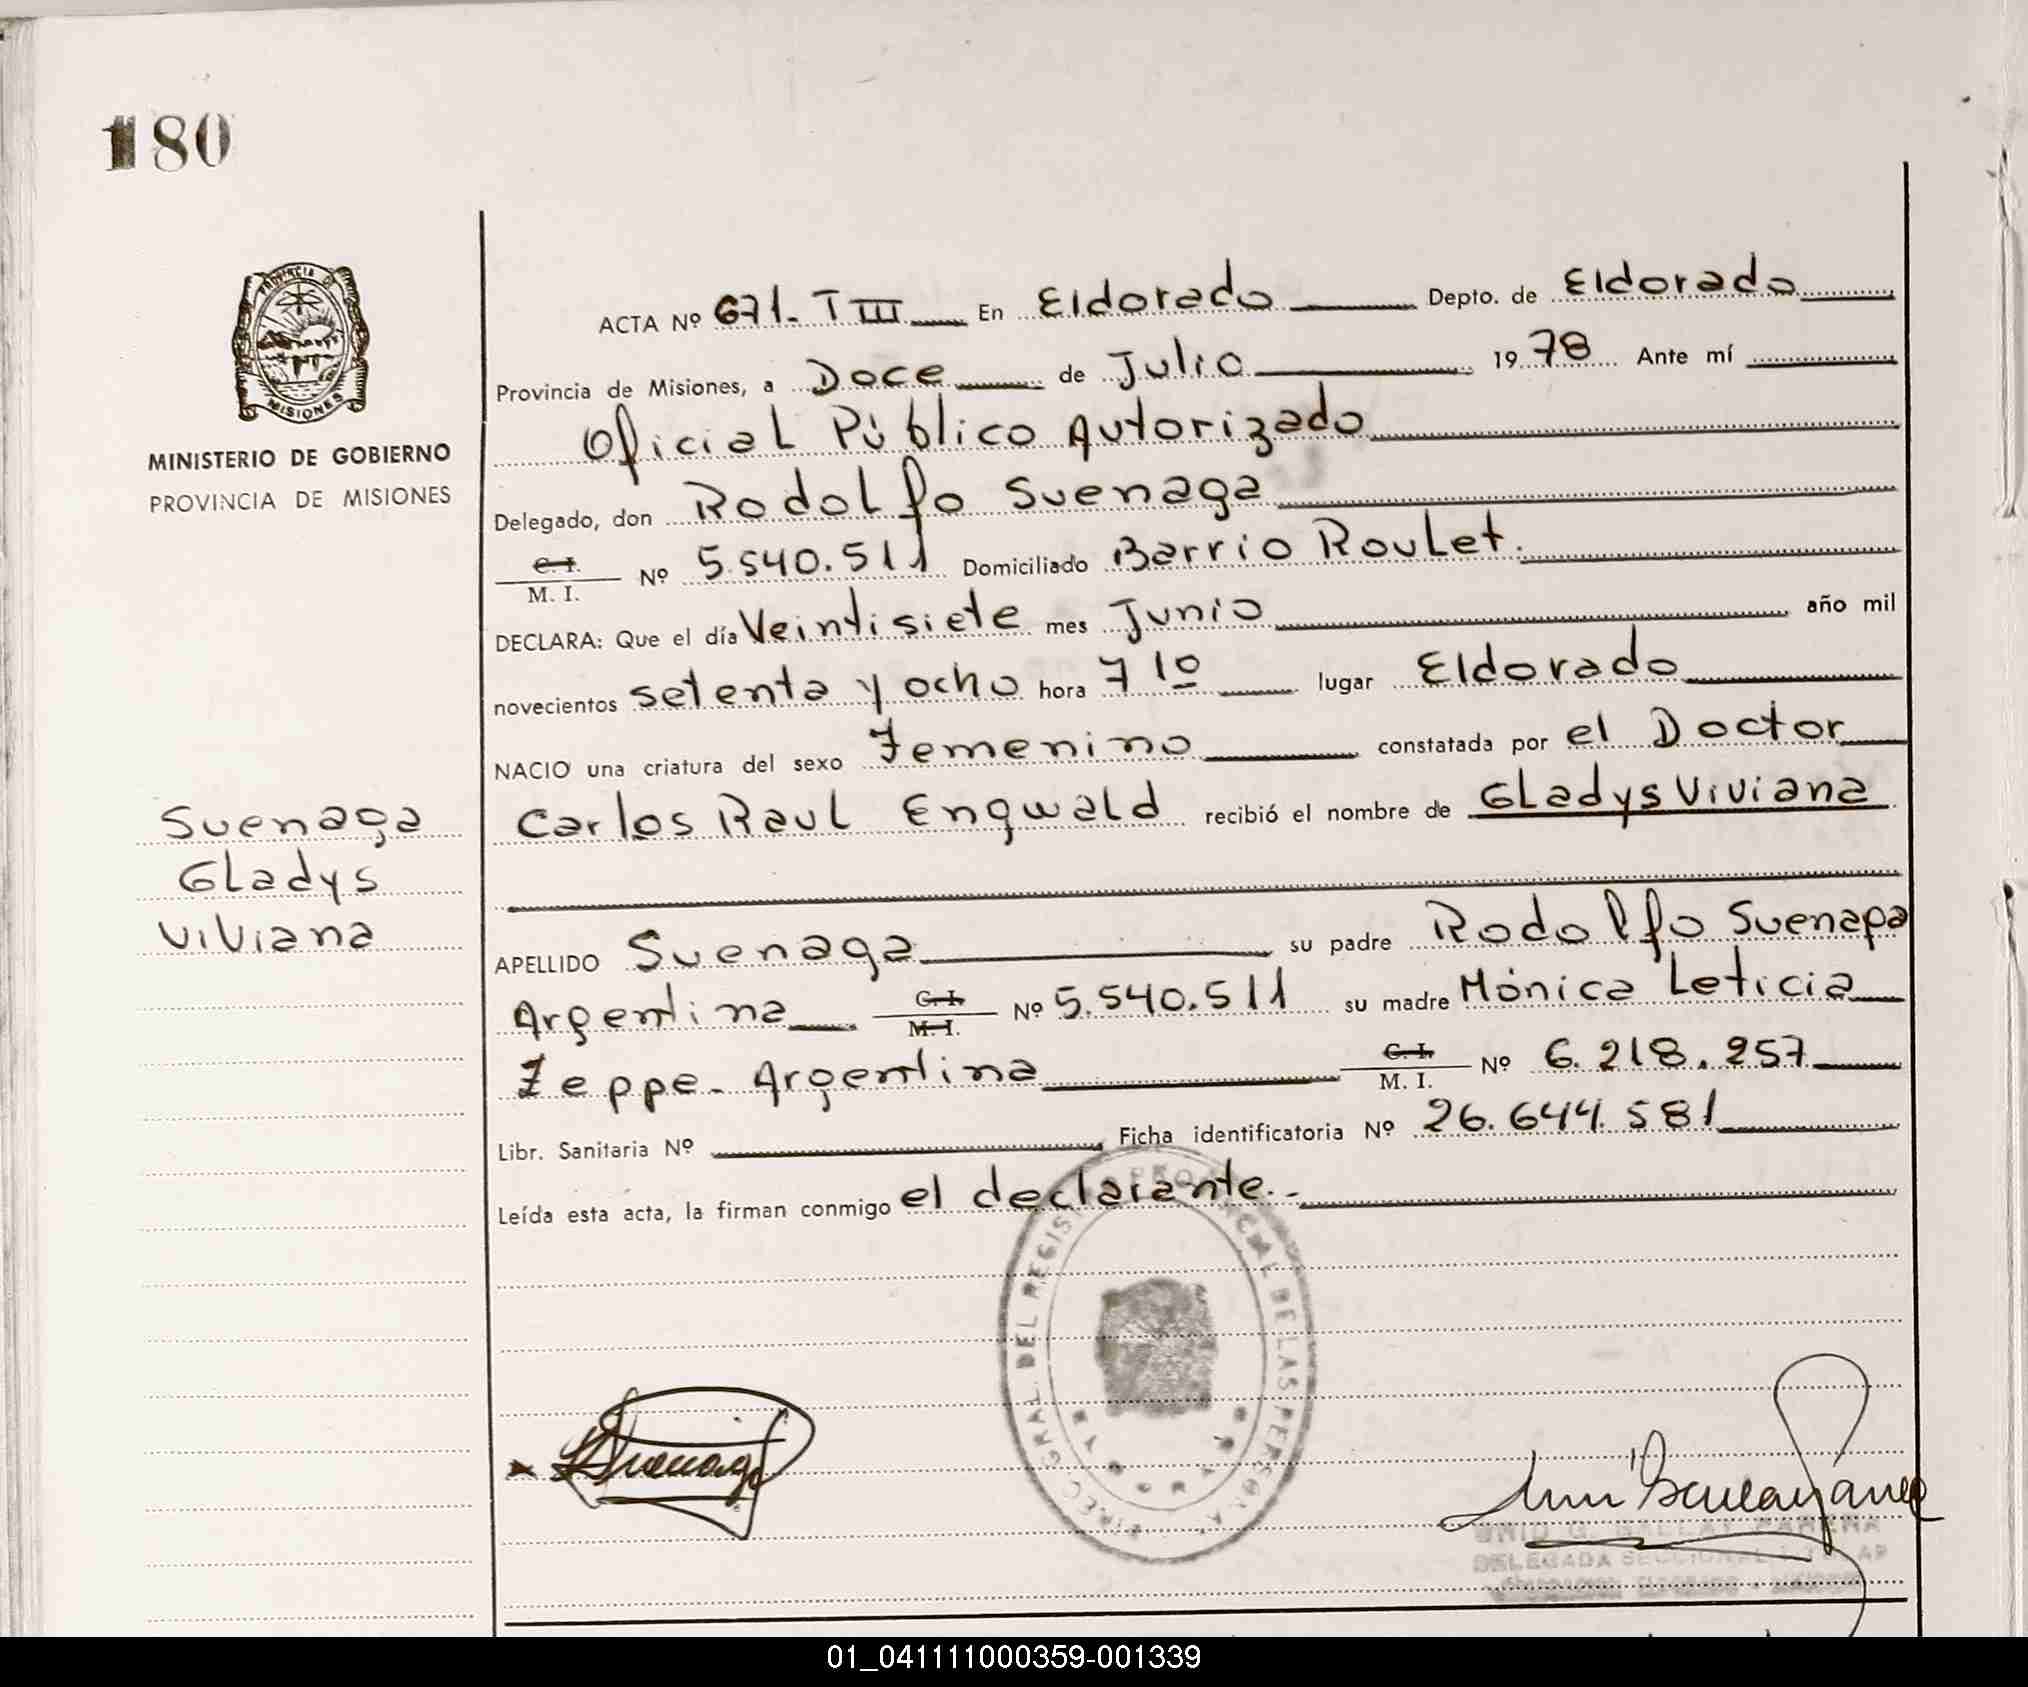 180
PROVINCIA DE
MISIONES
MINISTERIO DE GOBIERNO
PROVINCIA DE MISIONES
ACTA Nº 671. T III En Eldorado Depto. de Eldorado
Provincia de Misiones, a Doce de Julio 1978 Ante mí
Oficial Público Autorizado
Delegado, don Rodolfo Suenaga
C. I.
M. I. Nº 5.540.511 Domiciliado Barrio Roulet.
DECLARA: Que el día Veintisiete mes Junio año mil
novecientos setenta y ocho hora 7 10 lugar Eldorado
NACIO una criatura del sexo Femenino constatada por el Doctor
Carlos Raul Engwald recibió el nombre de Gladys Viviana
Suenaga
Gladys
Viviana
APELLIDO Suenaga su padre Rodolfo Suenaga
Argentina C. I. M. I. Nº 5.540.511 su madre Mónica Leticia
Zeppe. Argentina C. I. M. I. Nº 6.218.257
Libr. Sanitaria Nº Ficha identificatoria Nº 26.644.581
Leída esta acta, la firman conmigo el declarante.-
DIREC. GRAL. DEL REGIS PROVINCIAL DE LAS PERSONA
Suenaga
DELEGADA SECCIONAL
01_041111000359-001339